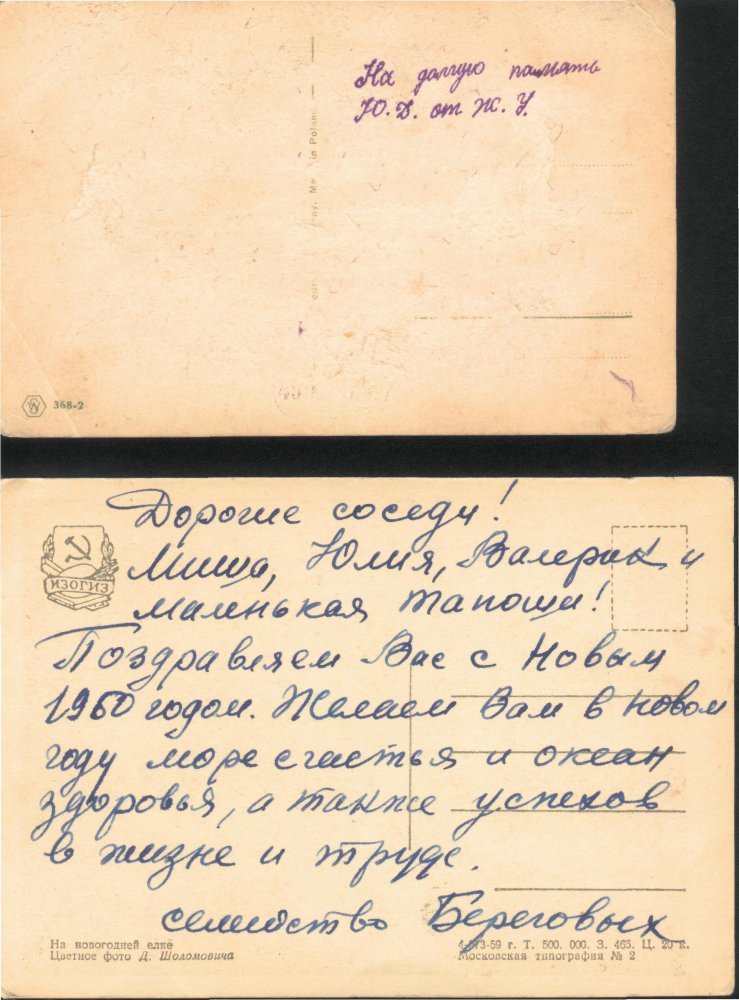 На долгую память
Ю.Д. от Ж. У.
in Poland
368-2
Дорогие соседи!
Миша, Юлия, Валерик и
маленькая Тапоши!
ИЗОГИЗ
Поздравляем Вас с Новым
1960 годом. Желаем Вам в новом
году море счастья и океан
здоровья, а также успехов
в жизне и труде.
семейство Береговых
На новогодней елке
Цветное фото Д. Шоломовича
73-59 г. Т. 500. 000. З. 465. Ц. 20 к.
Московская типография № 2